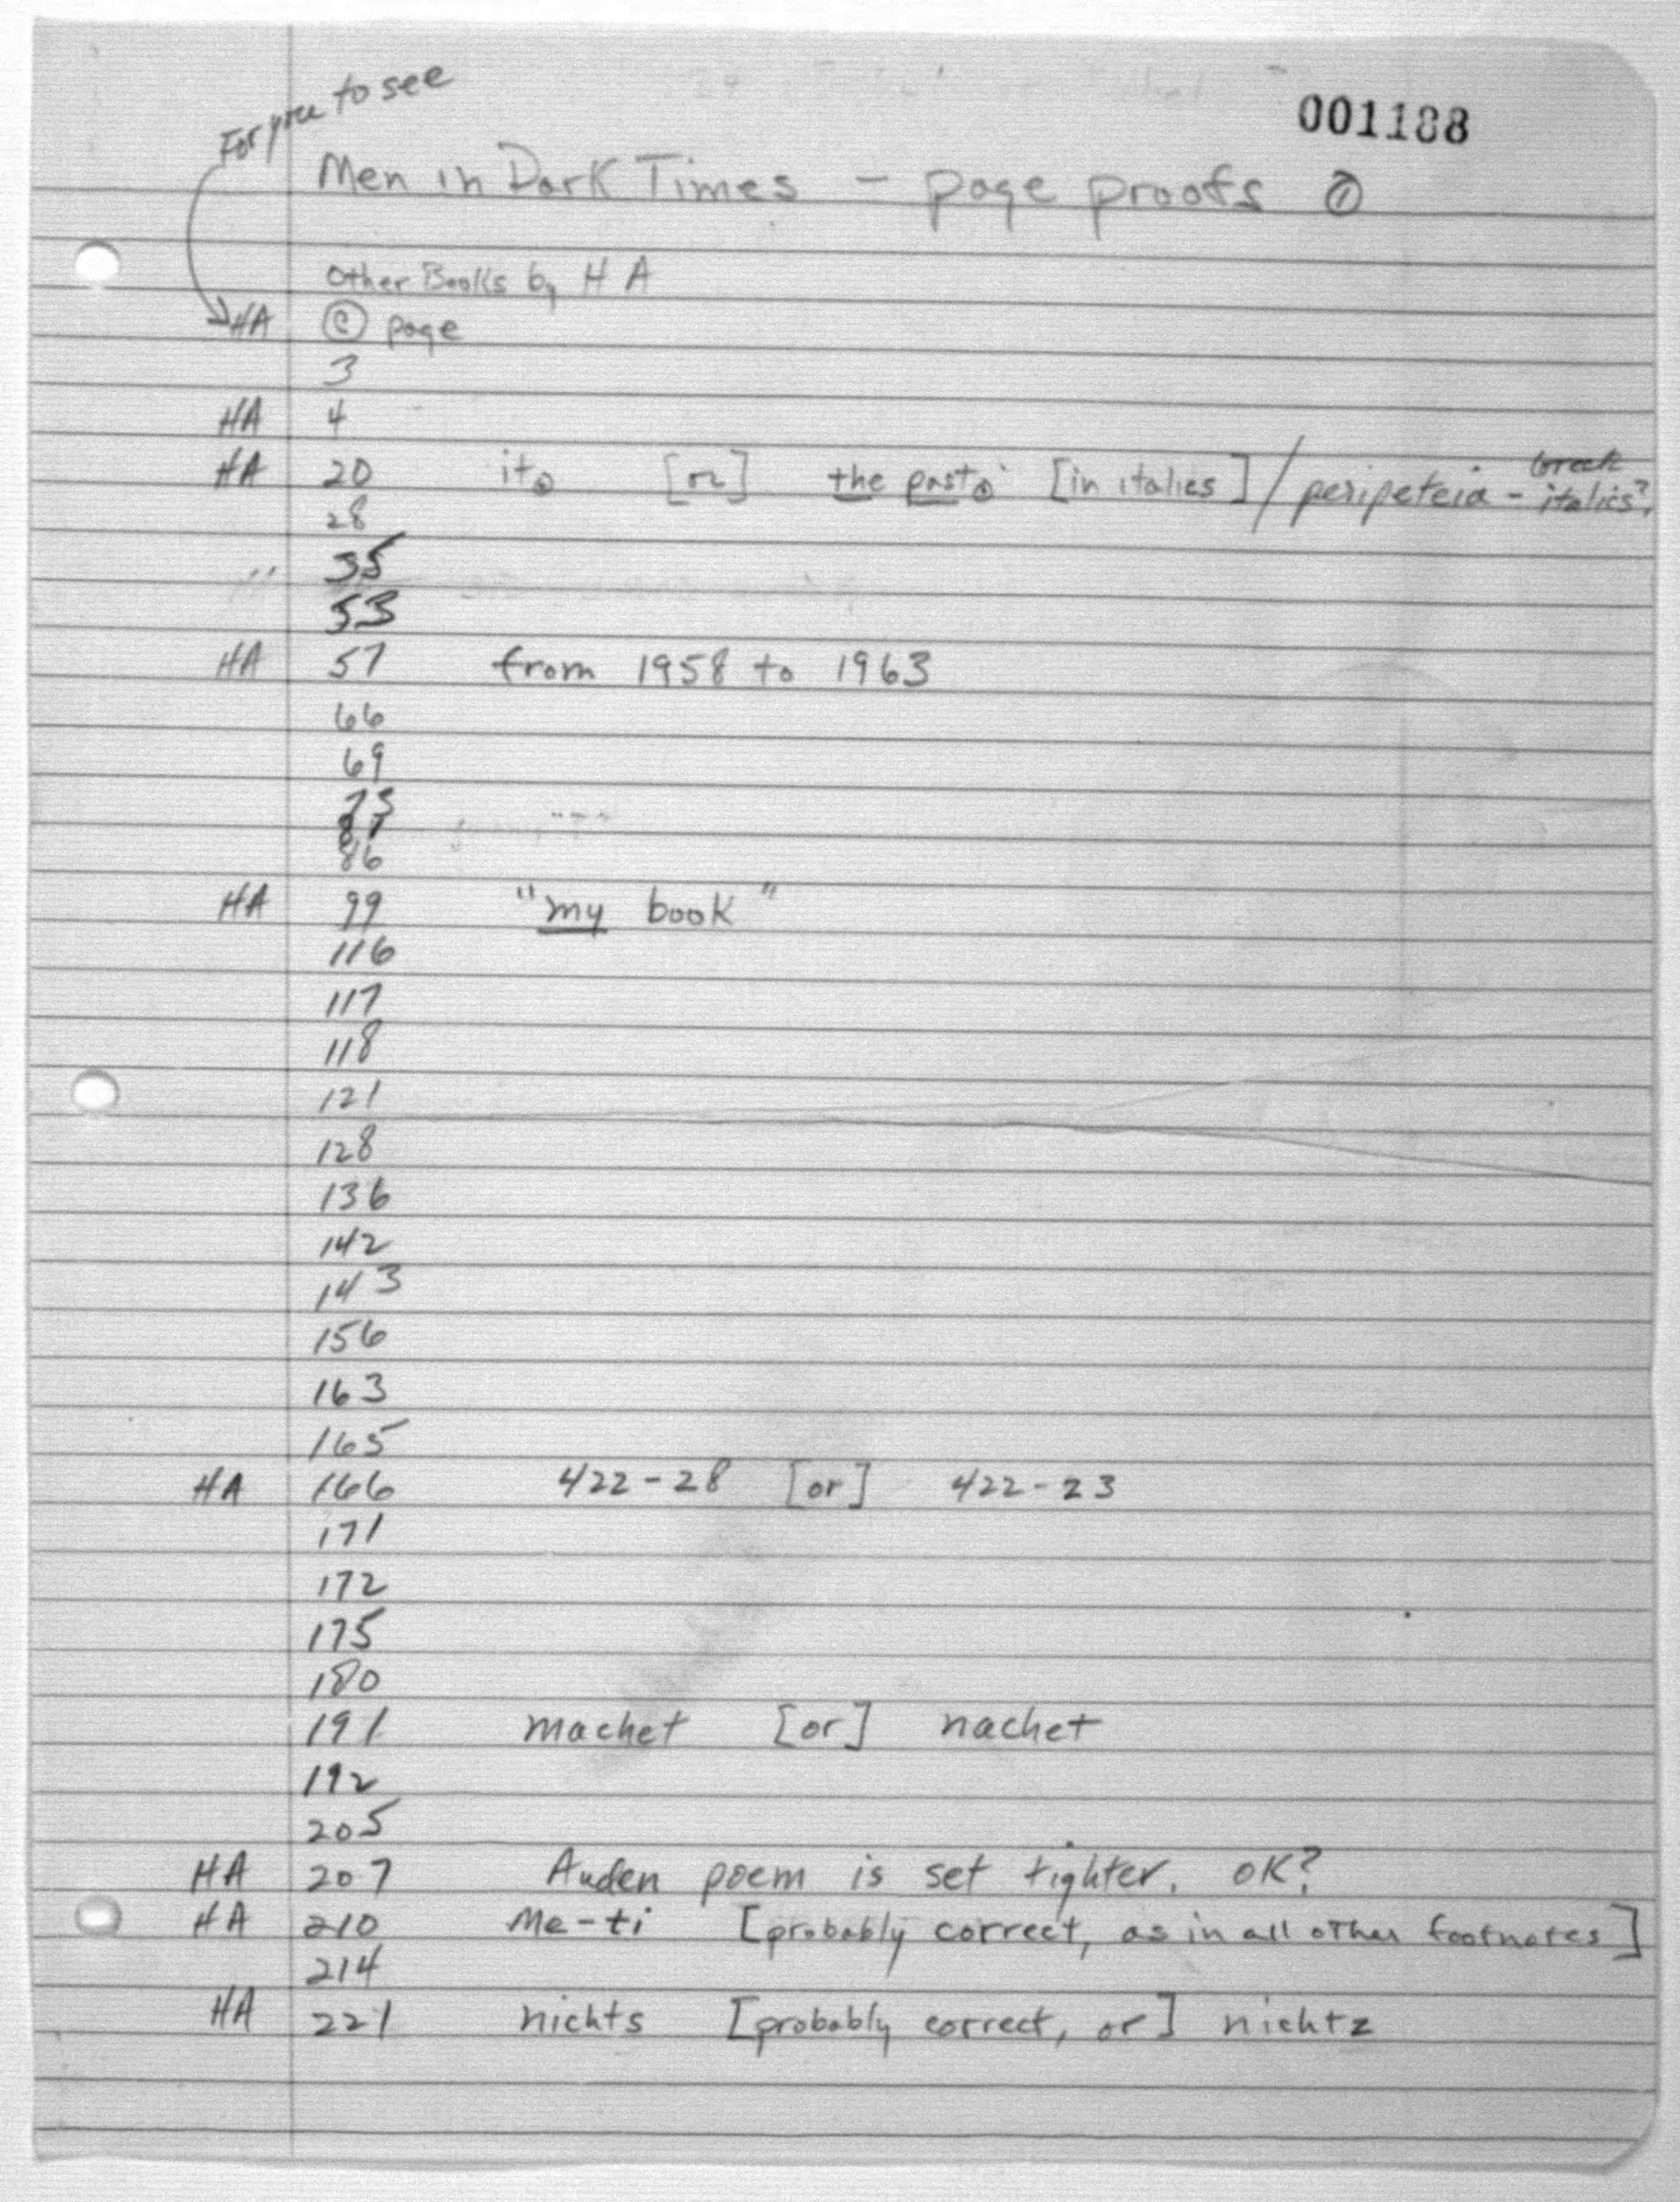 For you to see
001188
Men in Dark Times - page proofs ①
Other Books by H A
HA © page
3
HA 4
HA 20 it⊙ [or] the past⊙ [in italics] / peripeteia - Greek italics?
28
35
53
HA 57 from 1958 to 1963
66
69
73
81
86
HA 99 "my book"
116
117
118
121
128
136
142
143
156
163
165
HA 166 422-28 [or] 422-23
171
172
175
180
191 machet [or] nachet
192
205
HA 207 Auden poem is set tighter. OK?
HA 210 Me-ti [probably correct, as in all other footnotes]
214
HA 221 nichts [probably correct, or] nichtz